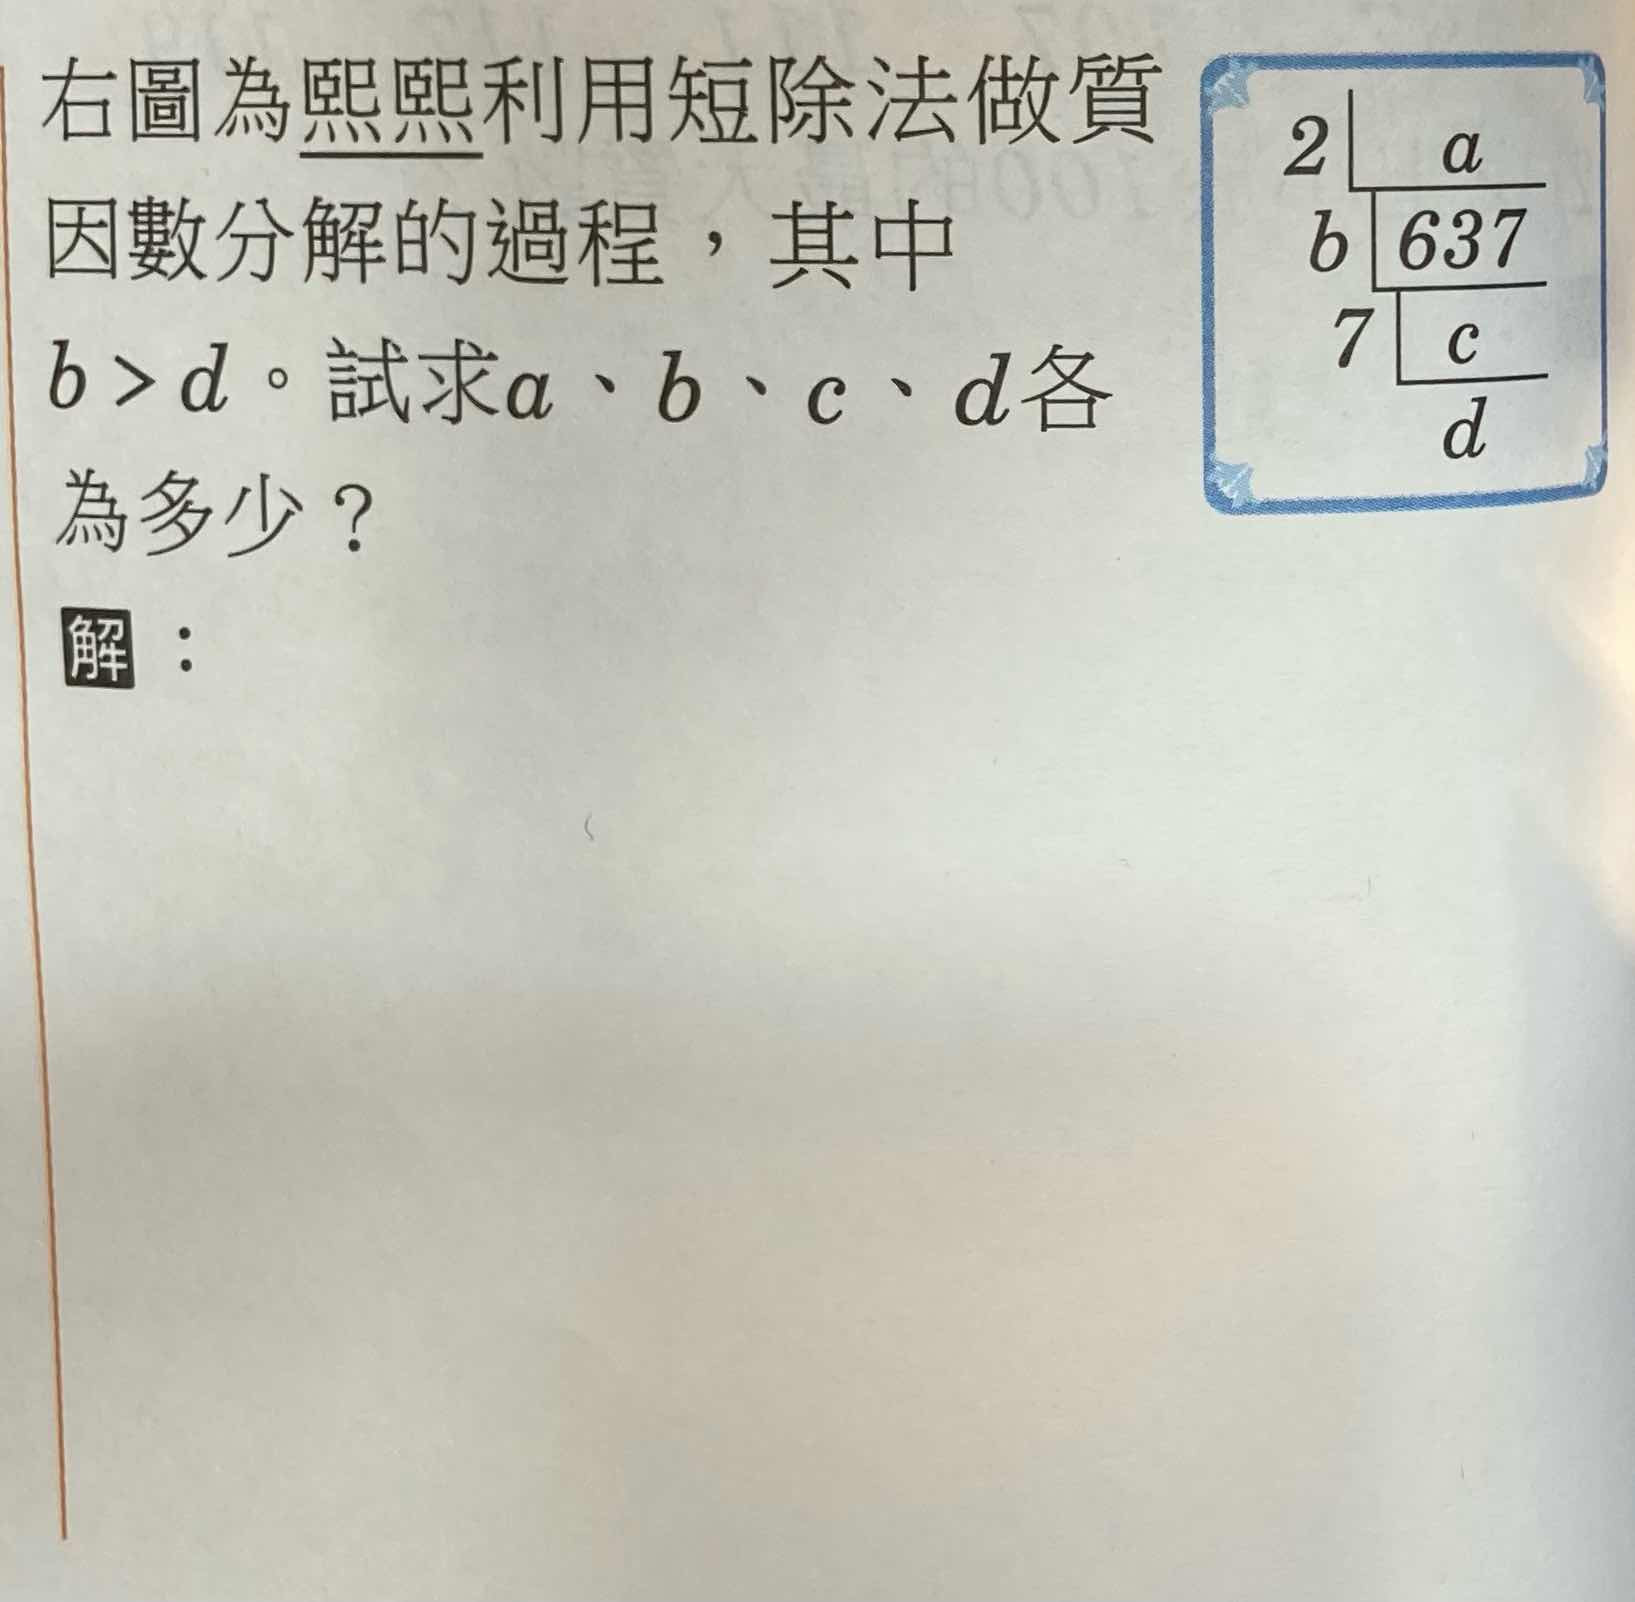 右圖為熙熙利用短除法做質
因數分解的過程，其中
b > d。試求a、b、c、d各
為多少？
2 a
b 637
7 c
d
解：